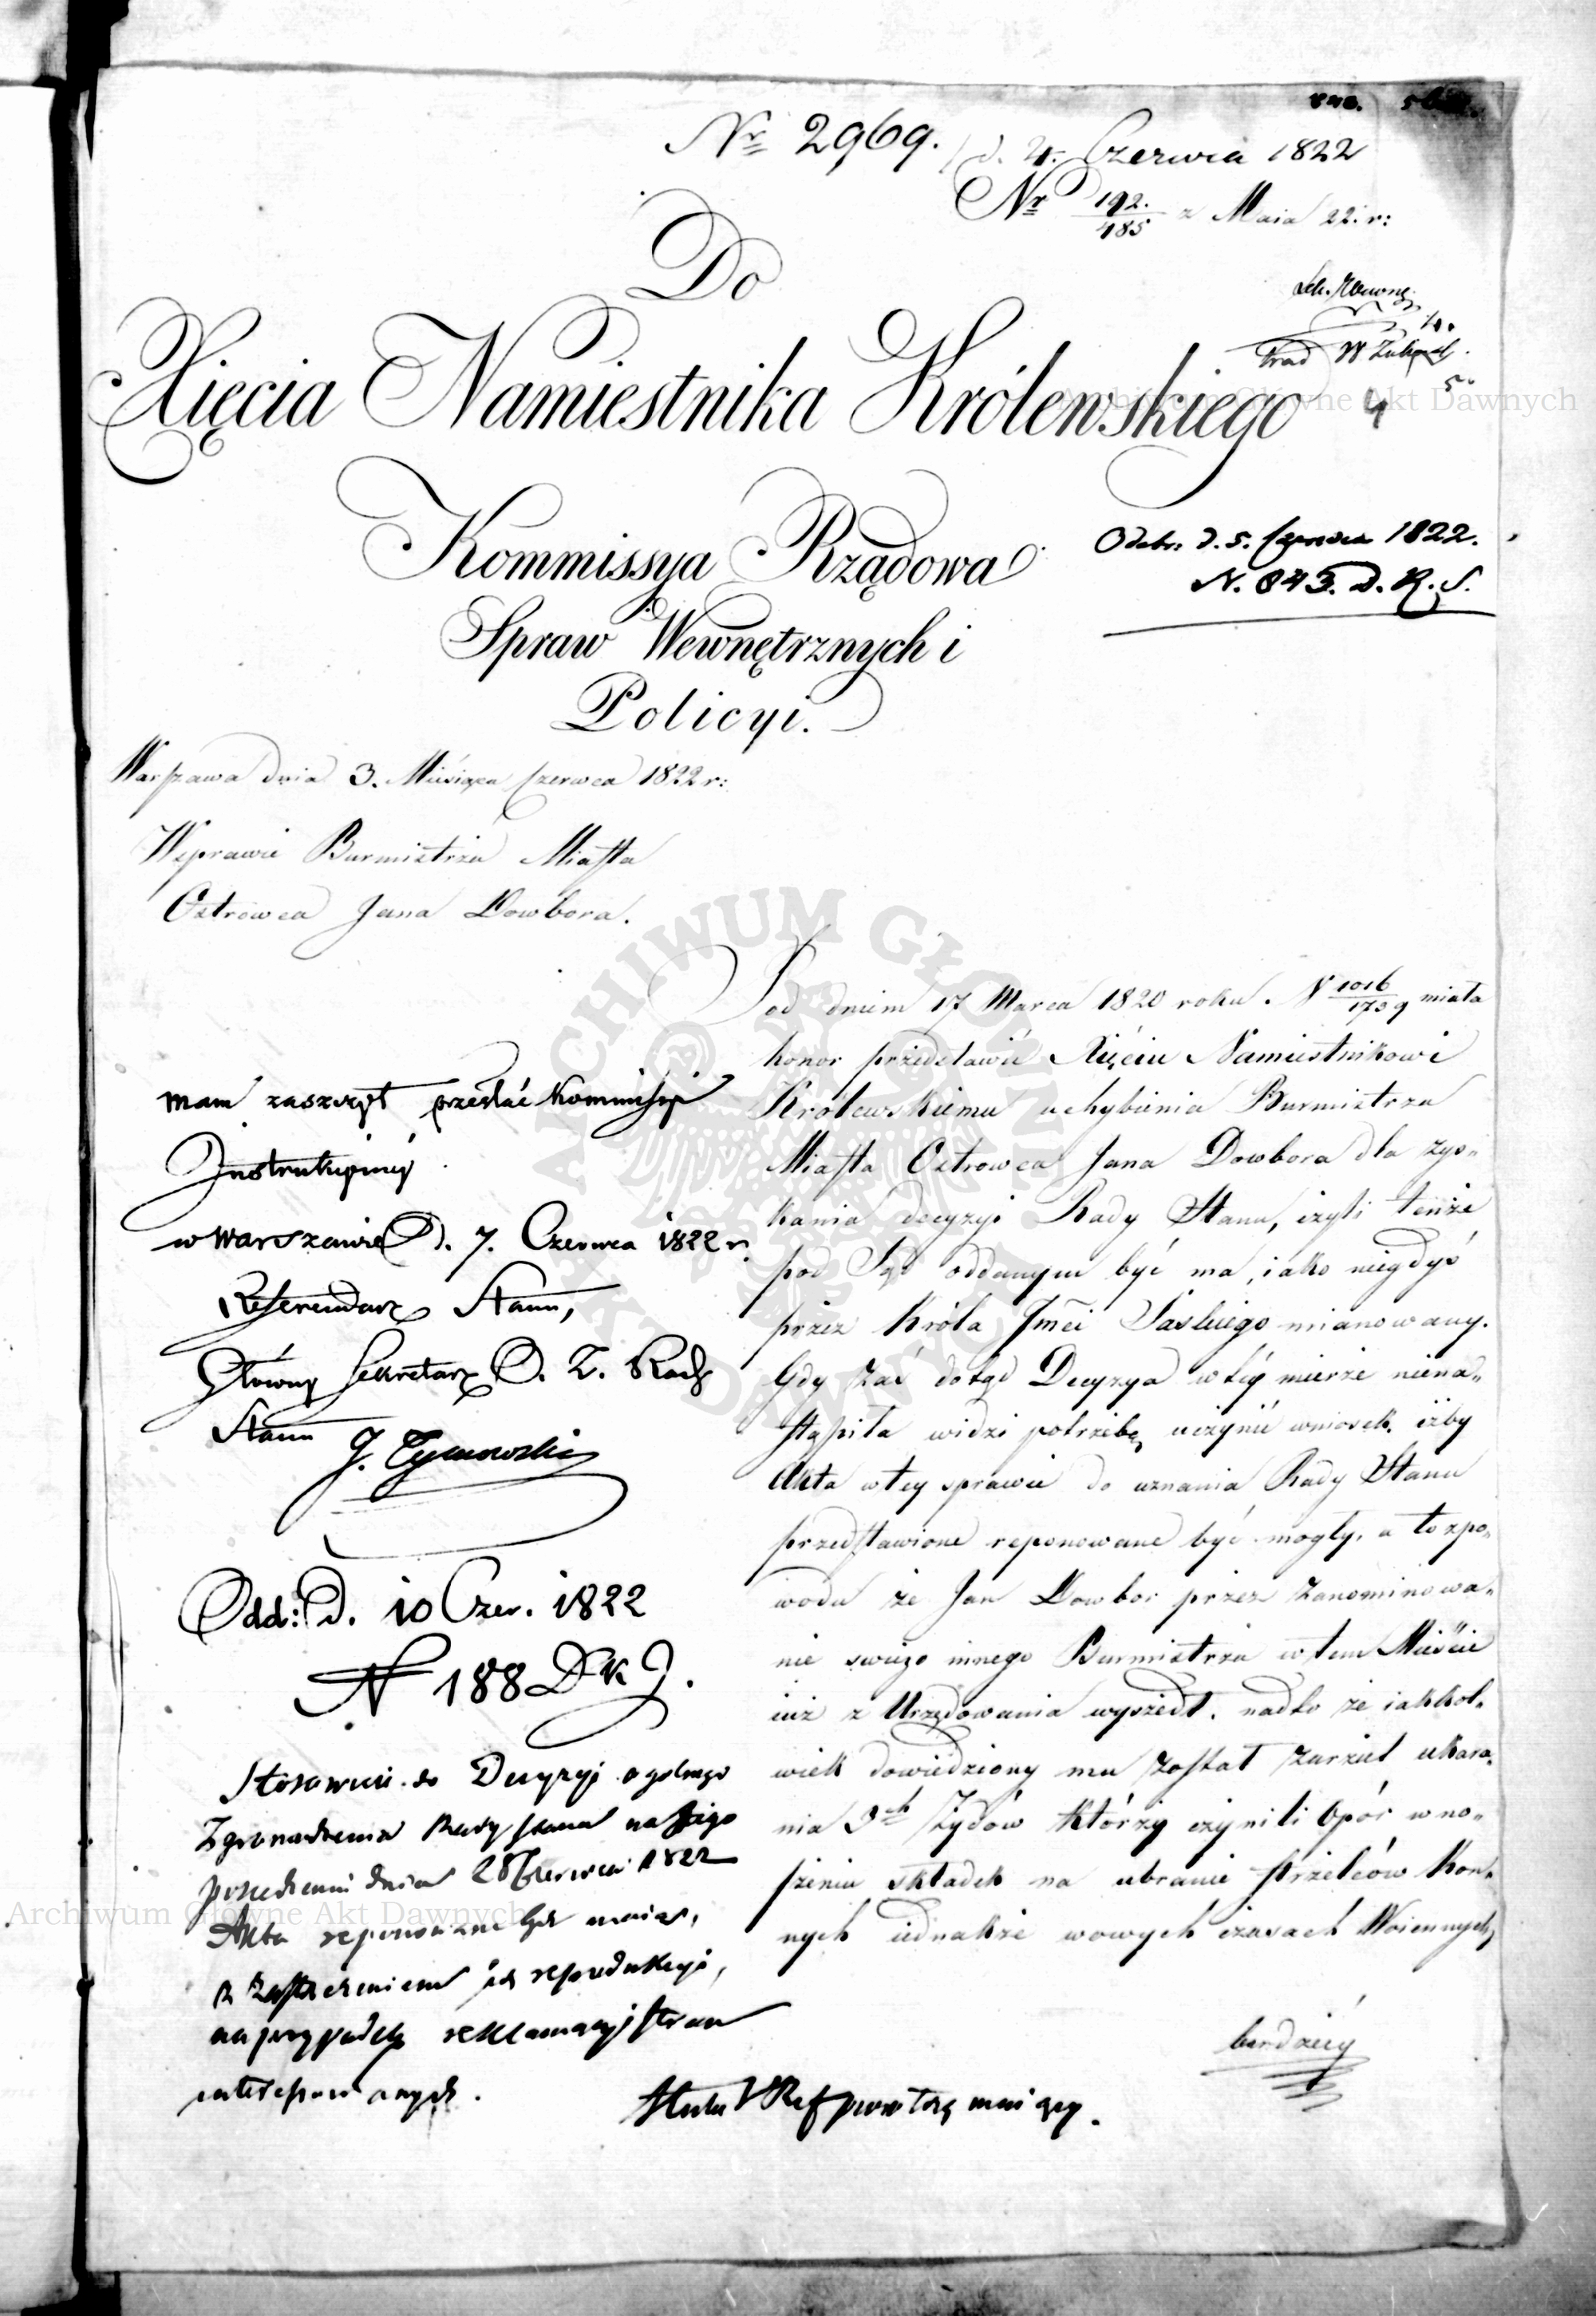 Nr 2969. d. 4. Czerwca 1822
Nr 192./485 z Maia 22. r:
Do
Xięcia Namiestnika Królewskiego
4
Kommissya Rządowa
Spraw Wewnętrznych i
Policyi.
Odebr. d. 5. Czerwca 1822.
N. 843. D. R. S.
Warszawa dnia 3. Miesiąca Czerwca 1822 r:
W sprawie Burmistrza Miasta
Ostrowca Jana Dowbora.
Pod dniem 17 Marca 1820 roku. N 1016/1739 miała
honor przedstawić Xięciu Namiestnikowi
Królewskiemu uchybienia Burmistrza
Miasta Ostrowca Jana Dowbora dla zys„
kania decyzyi Rady Stanu, czyli tenże
pod Sąd oddanym być ma, iako niegdyś
przez Króla Jmci Saskiego mianowany.
Gdy zaś dotąd Decyzya w téy mierze niena„
stąpiła widzi potrzebę uczynić wniosek, iżby
Akta w tey sprawie do uznania Rady Stanu
przedstawione reponowane być mogły, a to z po„
wodu że Jan Dowbor przez zanominowa„
nie swieżo innego Burmistrza w tem Mieście
iuż z Urzędowania wyszedł, nadto że iakkol„
wiek dowiedziony mu został zarzut ukara„
nia 3ch Żydów którzy czynili opór w no„
szeniu składek na ubranie strzelców Kon„
nych iednakże w owych czasach Woiennych,
bardziéy
mam zaszczyt przesłać Kommissyi
Instrukcyinéy
w Warszawie D. 7. Czerwca 1822 r.
Referendarz Stanu,
Główny Sekretarz D. Z. Rady
Stanu J. Tymowski
Odd: D. 10 Czer. 1822
N 188 D K J.
Stosownie do Decyzyi ogólnego
Zgromadzenia Rady Stanu na
posiedzeniu dnia Czerwca 1822
Akta reponowane być maią,
z zastrzeżeniem ich reprodukcyi,
na przypadek reklamacyi stron
interessowanych.
Archiwum Główne Akt Dawnych
Archiwum Główne Akt Dawnych
ARCHIWUM GŁÓWNE AKT DAWNYCH